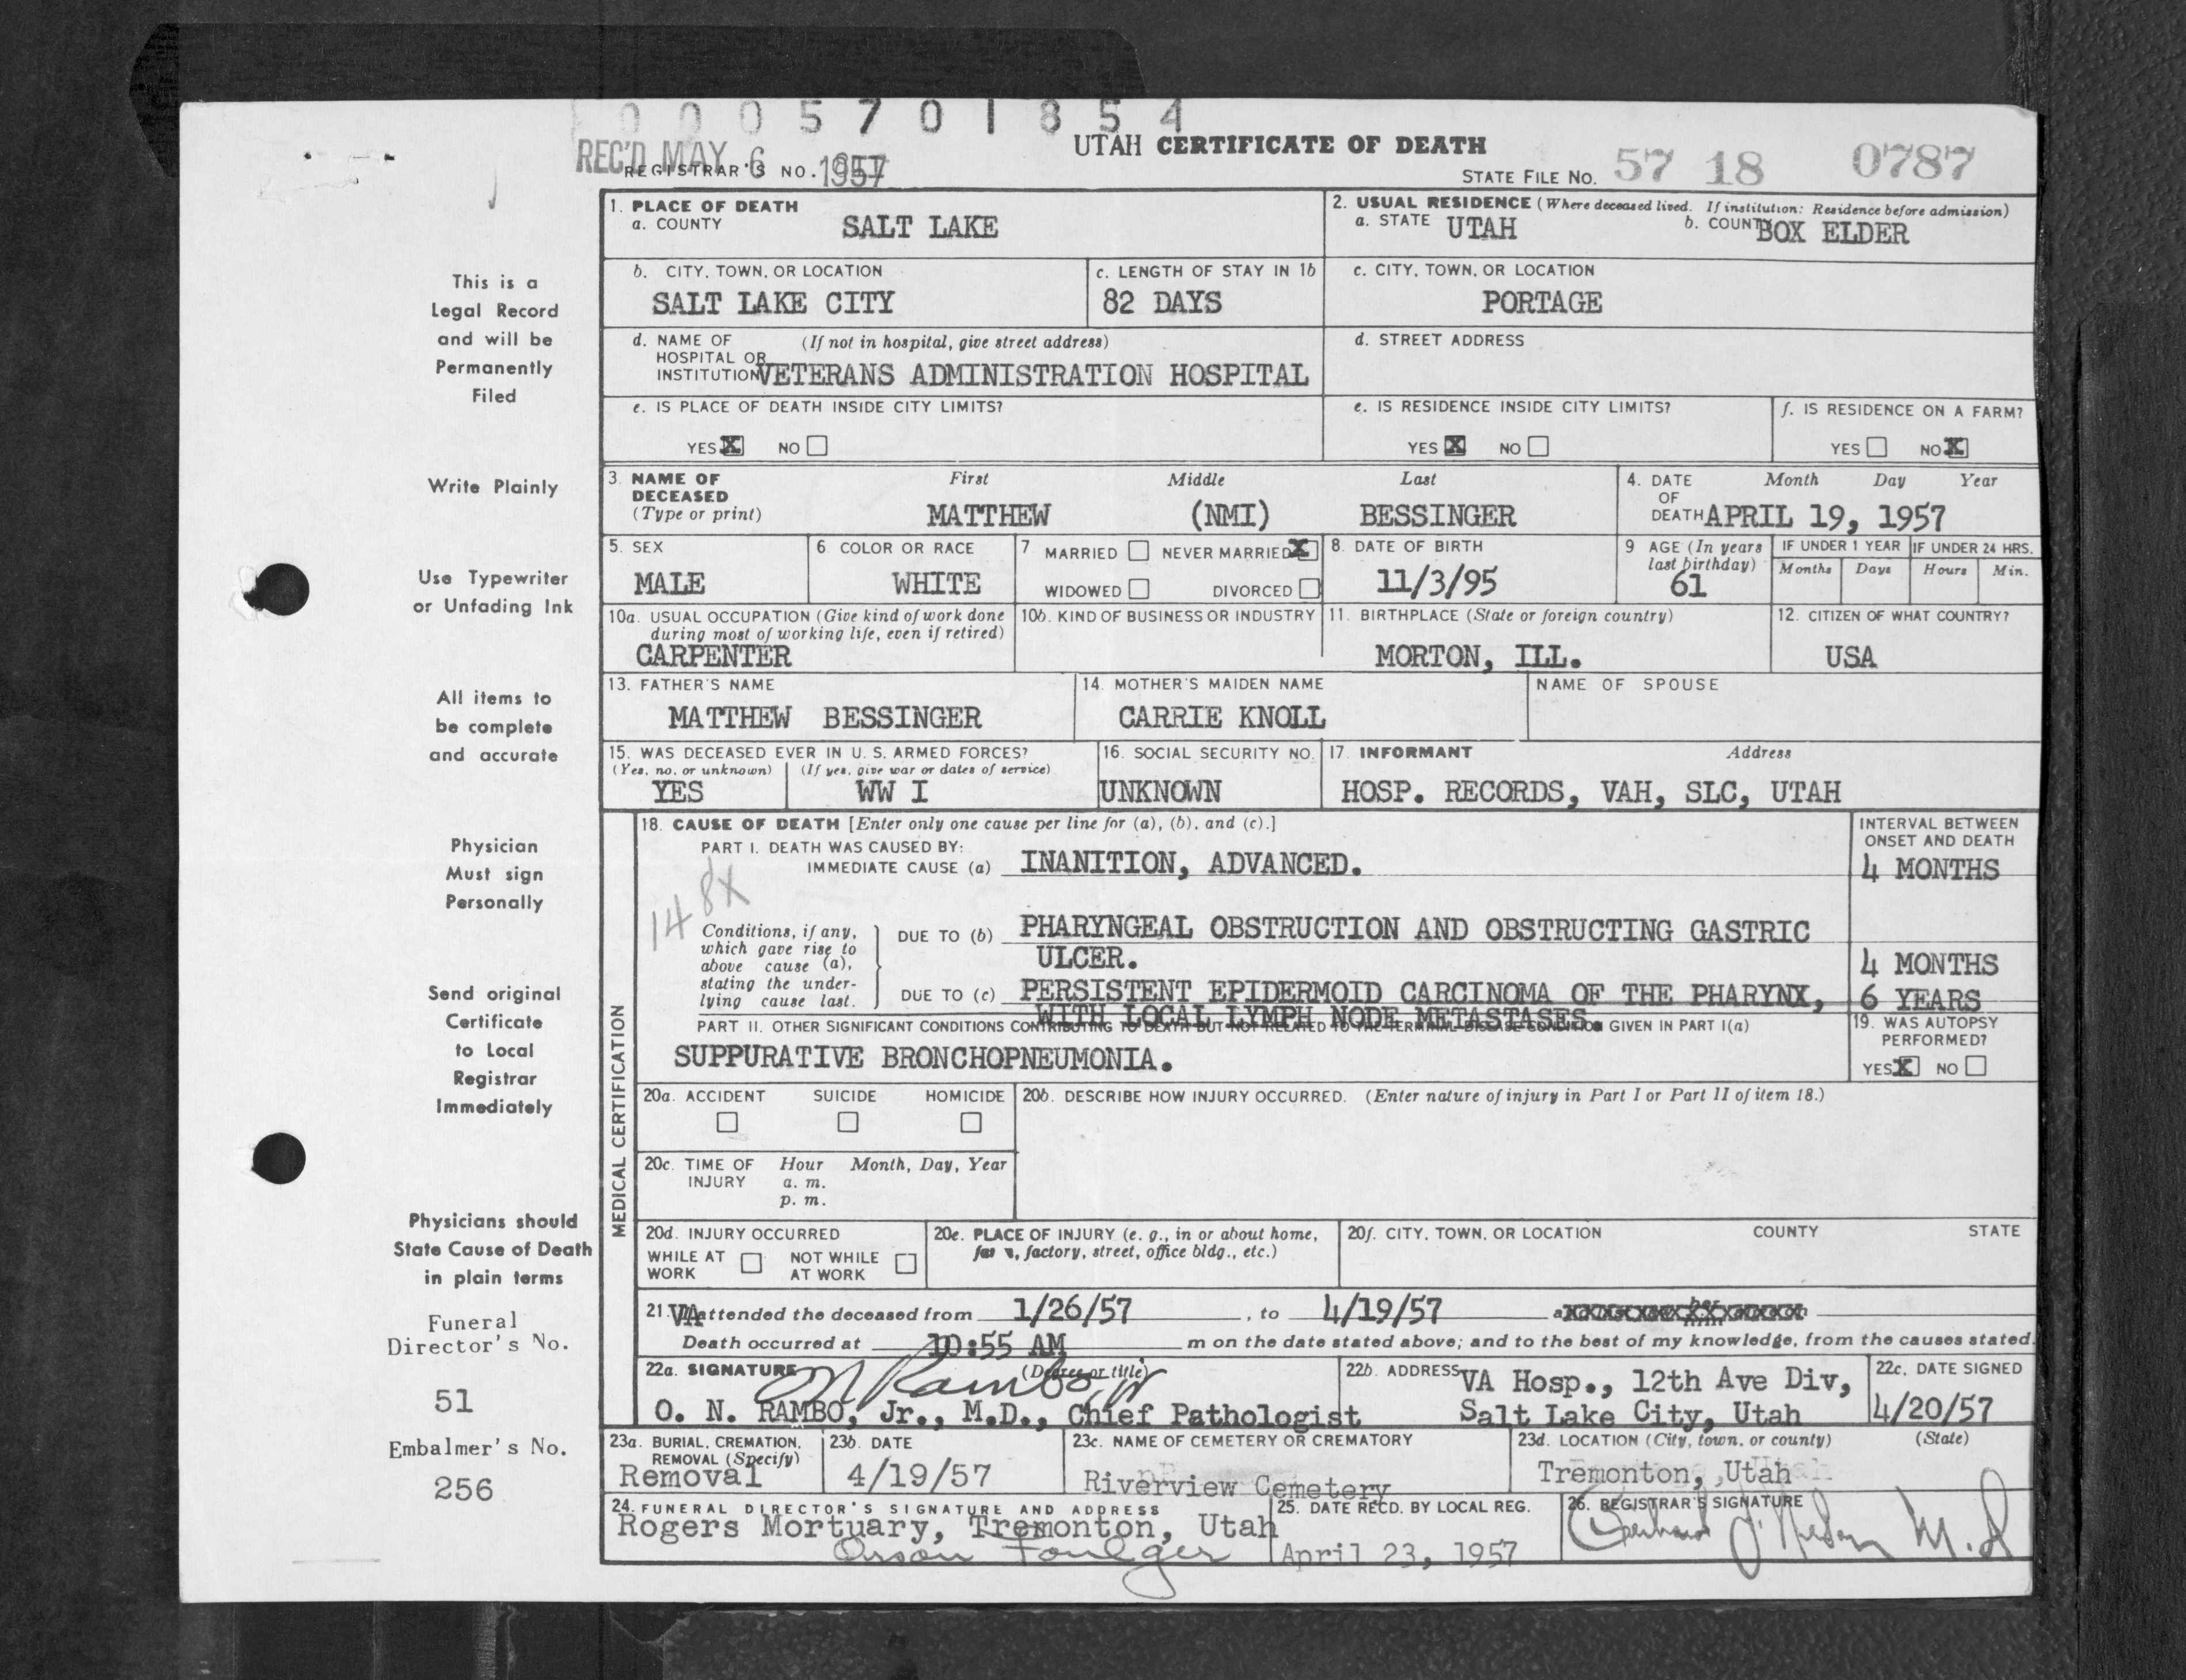 0005701854
UTAH CERTIFICATE OF DEATH
REC'D MAY 6 1957
REGISTRAR'S NO.
STATE FILE NO. 57 18 0787
1. PLACE OF DEATH
a. COUNTY SALT LAKE
2. USUAL RESIDENCE (Where deceased lived. If institution: Residence before admission)
a. STATE UTAH b. COUNTY BOX ELDER
b. CITY, TOWN, OR LOCATION
SALT LAKE CITY
c. LENGTH OF STAY IN 1b
82 DAYS
c. CITY, TOWN, OR LOCATION
PORTAGE
d. NAME OF HOSPITAL OR INSTITUTION (If not in hospital, give street address)
VETERANS ADMINISTRATION HOSPITAL
d. STREET ADDRESS
e. IS PLACE OF DEATH INSIDE CITY LIMITS?
YES X NO
e. IS RESIDENCE INSIDE CITY LIMITS?
YES X NO
f. IS RESIDENCE ON A FARM?
YES NO X
3. NAME OF DECEASED (Type or print)
First Middle Last
MATTHEW (NMI) BESSINGER
4. DATE OF DEATH Month Day Year
APRIL 19, 1957
5. SEX
MALE
6. COLOR OR RACE
WHITE
7. MARRIED NEVER MARRIED X
WIDOWED DIVORCED
8. DATE OF BIRTH
11/3/95
9. AGE (In years last birthday)
61
IF UNDER 1 YEAR
Months Days
IF UNDER 24 HRS.
Hours Min.
10a. USUAL OCCUPATION (Give kind of work done during most of working life, even if retired)
CARPENTER
10b. KIND OF BUSINESS OR INDUSTRY
11. BIRTHPLACE (State or foreign country)
MORTON, ILL.
12. CITIZEN OF WHAT COUNTRY?
USA
13. FATHER'S NAME
MATTHEW BESSINGER
14. MOTHER'S MAIDEN NAME
CARRIE KNOLL
NAME OF SPOUSE
15. WAS DECEASED EVER IN U. S. ARMED FORCES?
(Yes, no, or unknown) (If yes, give war or dates of service)
YES WW I
16. SOCIAL SECURITY NO.
UNKNOWN
17. INFORMANT Address
HOSP. RECORDS, VAH, SLC, UTAH
MEDICAL CERTIFICATION
18. CAUSE OF DEATH [Enter only one cause per line for (a), (b), and (c).]
PART I. DEATH WAS CAUSED BY:
IMMEDIATE CAUSE (a) INANITION, ADVANCED.
INTERVAL BETWEEN ONSET AND DEATH
4 MONTHS
148X
Conditions, if any, which gave rise to above cause (a), stating the underlying cause last.
DUE TO (b) PHARYNGEAL OBSTRUCTION AND OBSTRUCTING GASTRIC
ULCER.
4 MONTHS
DUE TO (c) PERSISTENT EPIDERMOID CARCINOMA OF THE PHARYNX,
WITH LOCAL LYMPH NODE METASTASES.
6 YEARS
PART II. OTHER SIGNIFICANT CONDITIONS CONTRIBUTING TO DEATH BUT NOT RELATED TO THE TERMINAL DISEASE CONDITION GIVEN IN PART I(a)
SUPPURATIVE BRONCHOPNEUMONIA.
19. WAS AUTOPSY PERFORMED?
YES X NO
20a. ACCIDENT SUICIDE HOMICIDE
20b. DESCRIBE HOW INJURY OCCURRED. (Enter nature of injury in Part I or Part II of item 18.)
20c. TIME OF INJURY Hour Month, Day, Year
a. m.
p. m.
20d. INJURY OCCURRED
WHILE AT WORK NOT WHILE AT WORK
20e. PLACE OF INJURY (e. g., in or about home, farm, factory, street, office bldg., etc.)
20f. CITY, TOWN, OR LOCATION COUNTY STATE
21. VA attended the deceased from 1/26/57, to 4/19/57
Death occurred at 10:55 AM m on the date stated above; and to the best of my knowledge, from the causes stated.
22a. SIGNATURE (Degree or title)
O N Rambo, Jr
O. N. RAMBO, Jr., M.D., Chief Pathologist
22b. ADDRESS VA Hosp., 12th Ave Div,
Salt Lake City, Utah
22c. DATE SIGNED
4/20/57
23a. BURIAL, CREMATION, REMOVAL (Specify)
Removal
23b. DATE
4/19/57
23c. NAME OF CEMETERY OR CREMATORY
Riverview Cemetery
23d. LOCATION (City, town, or county) (State)
Tremonton, Utah
24. FUNERAL DIRECTOR'S SIGNATURE AND ADDRESS
Rogers Mortuary, Tremonton, Utah
Orson Foulger
25. DATE RECD. BY LOCAL REG.
April 23, 1957
26. REGISTRAR'S SIGNATURE
M.D
This is a
Legal Record
and will be
Permanently
Filed
Write Plainly
Use Typewriter
or Unfading Ink
All items to
be complete
and accurate
Physician
Must sign
Personally
Send original
Certificate
to Local
Registrar
Immediately
Physicians should
State Cause of Death
in plain terms
Funeral
Director's No.
51
Embalmer's No.
256